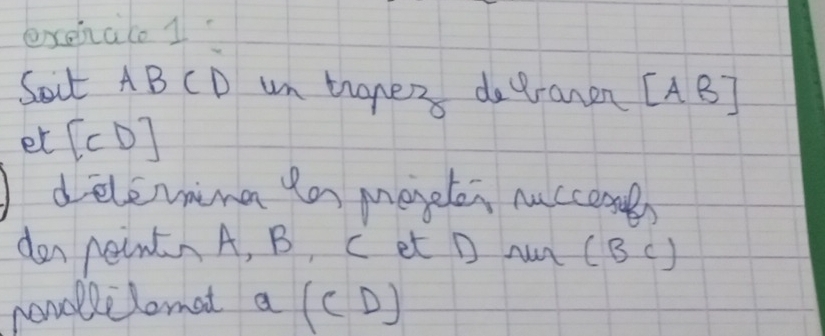 exercice 1 :
Soit ABCD un trapez de basen [AB]
et [CD]
) déterminer les projetés successifs
des points A, B, C et D sur (BC)
parallèlemat a (CD)